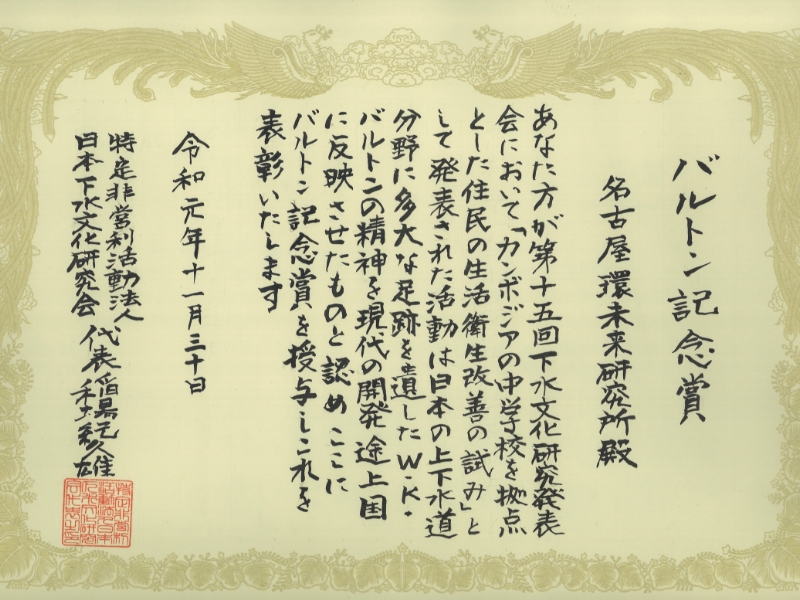 バルトン記念賞
名古屋環未来研究所殿
あなた方が第十五回下水文化研究発表
会において「カンボジアの中学校を拠点
とした住民の生活衛生改善の試み」と
して発表された活動は日本の上下水道
分野に多大な足跡を遺したW・K・
バルトンの精神を現代の開発途上国
に反映させたものと認めここに
バルトン記念賞を授与しこれを
表彰いたします
令和元年十一月三十日
特定非営利活動法人
日本下水文化研究会 代表